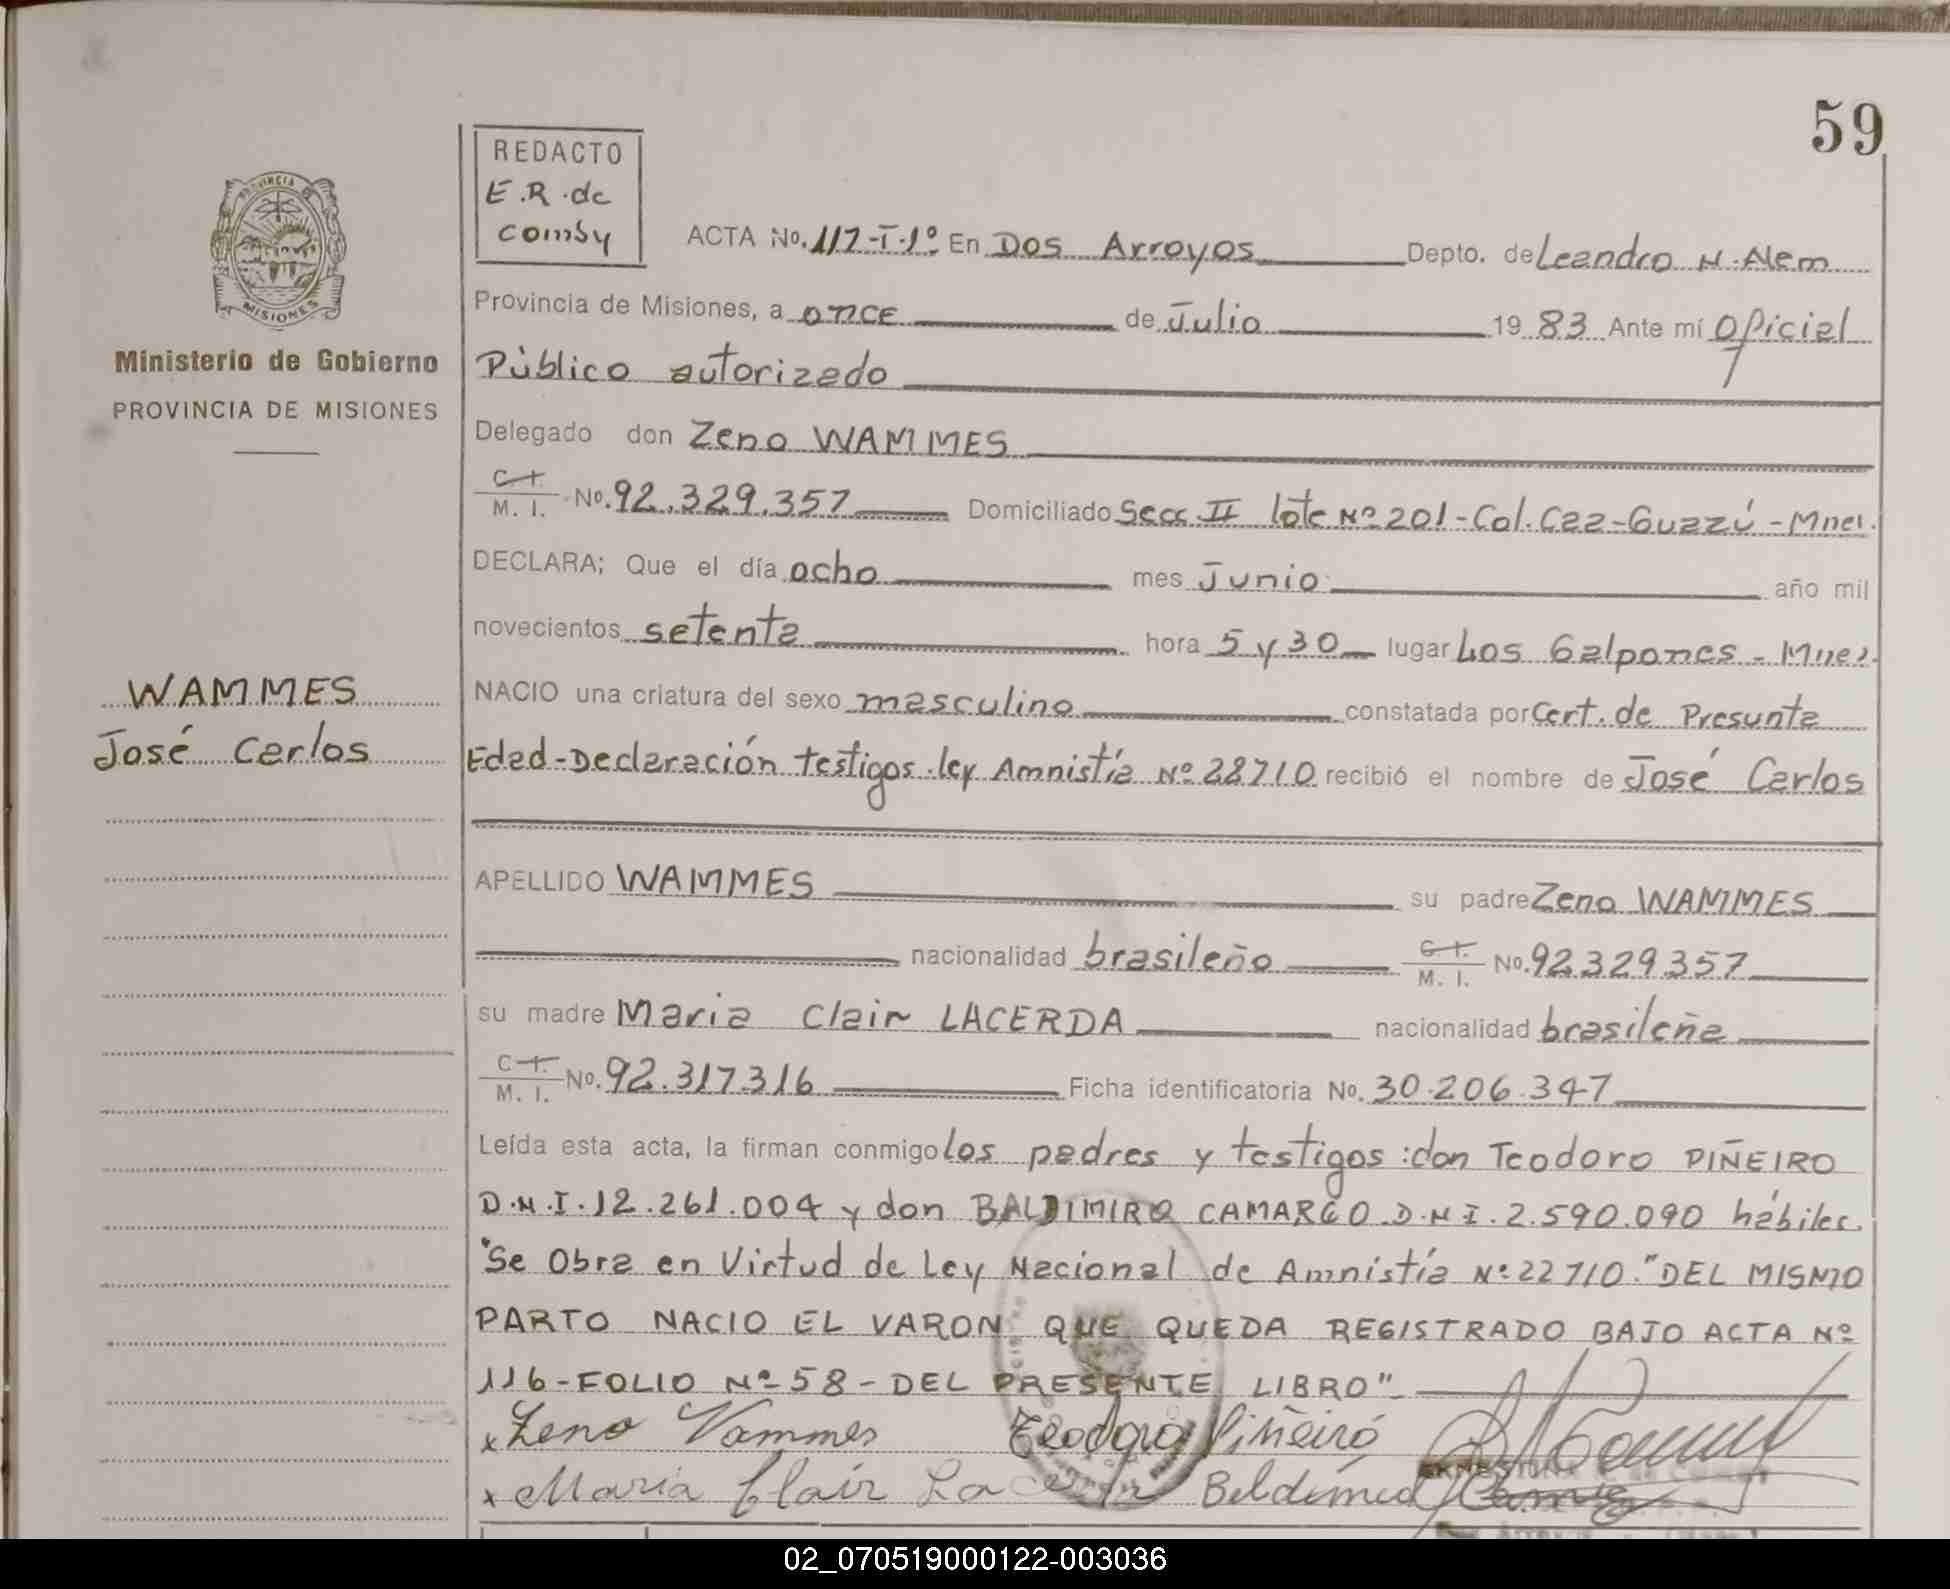 59
REDACTO
E.R. de
comsy
PROVINCIA
MISIONES
Ministerio de Gobierno
PROVINCIA DE MISIONES
WAMMES
José Carlos
ACTA No. 117-T-1º En Dos Arroyos Depto. de Leandro N. Alem
Provincia de Misiones, a once de Julio 1983 Ante mí Oficial
Público autorizado
Delegado don Zeno WAMMES
C.I. M. I. No. 92.329.357 Domiciliado Secc. II lote Nº 201-Col. Caa-Guazú-Mnes.
DECLARA; Que el día ocho mes Junio año mil
novecientos setenta hora 5 y 30 lugar Los Galpones - Mnes.
NACIO una criatura del sexo masculino constatada por Cert. de Presunta
Edad-Declaración testigos. ley Amnistía Nº 22710 recibió el nombre de José Carlos
APELLIDO WAMMES su padre Zeno WAMMES
nacionalidad brasileño C.I. M. I. No. 92.329.357
su madre Maria Clair LACERDA nacionalidad brasileña
C.I. M. I. No. 92.317.316 Ficha identificatoria No. 30.206.347
Leída esta acta, la firman conmigo los padres y testigos: don Teodoro PIÑEIRO
D.N.I. 12.261.004 y don BALDIMIRO CAMARGO D.N.I. 2.590.090 hábiles.
"Se Obra en Virtud de Ley Nacional de Amnistía Nº 22710." DEL MISMO
PARTO NACIO EL VARON QUE QUEDA REGISTRADO BAJO ACTA Nº
116-FOLIO Nº 58-DEL PRESENTE LIBRO"
x Zeno Wammes Teodoro Piñeiro
x Maria Clair
02_070519000122-003036